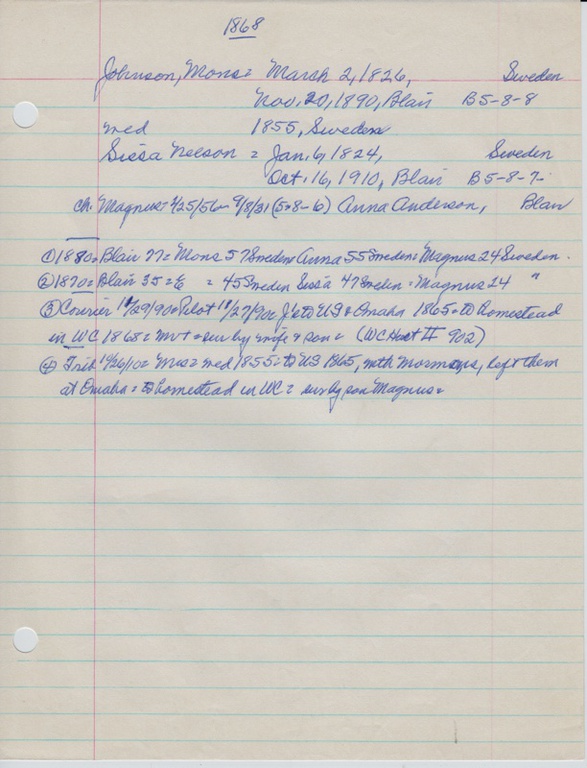 1868
Johnson, Mons = March 2, 1826, Sweden
Nov. 20, 1890, Blair B5-8-8
med 1855, Sweden
Sissa Nelson = Jan. 6, 1824, Sweden
Oct. 16, 1910, Blair B5-8-7
ch. Magnus = 4/25/56 - 9/8/31 (5-8-6) Anna Anderson, Blair
① 1880 = Blair 77 = Mons 57 Sweden Anna 55 Sweden = Magnus 24 Sweden.
② 1870 = Blair 35 = = 45 Sweden Sissa 47 Sweden = Magnus 24 "
③ Courier 11/29/90 = Pilot 11/27/90 = to US & Omaha 1865 = to homestead
in WC 1868 = = sur by wife & son = (WC Hist II 902)
④ Trib 10/26/10 = Mrs = med 1855 = to US 1865, with Mormons, left them
at Omaha = to homestead in WC = sur by son Magnus =